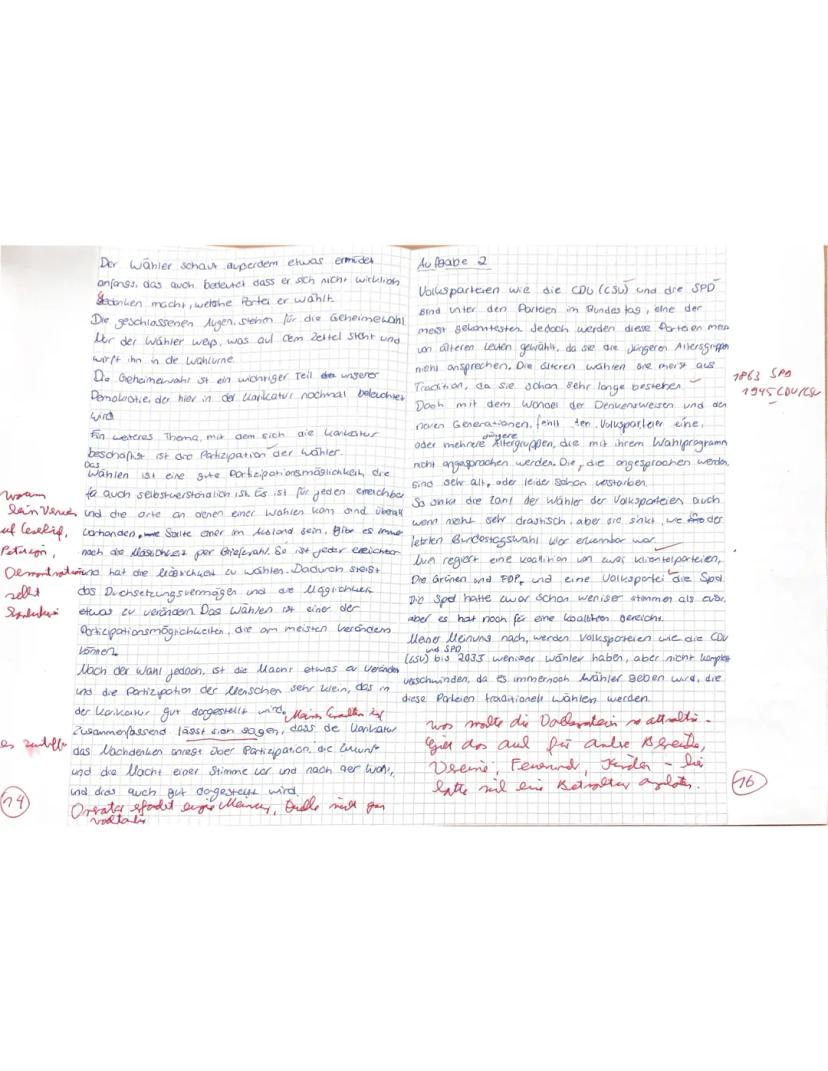 Der Wähler schaut außerdem etwas ermüdet
anfangs, das auch bedeutet dass er sich nicht wirklich
Gedanken macht, welche Partei er wählt.
Die geschlossenen Augen stehen für die Geheimewahl
Nur der Wähler weiß, was auf dem Zettel steht und
wirft ihn in die Wahlurne.
Die Geheimewahl ist ein wichtiger Teil unserer
Demokratie, der hier in der Karikatur nochmal beleuchtet
wird.
Ein weiteres Thema, mit dem sich die Karikatur
beschäftigt ist die Patizipation der Wähler.
Das
Wählen ist eine gute Partizipationsmöglichkeit, die
für auch selbstverständlich ist. Es ist für jeden erreichbar
und die orte an denen einer Wählen kann sind überall
vorhanden, Sollte einer im Ausland sein, gibt es immer
noch die Möglichkeit per Briefwahl. So ist jeder erreichbar
und hat die Möglichkeit zu wählen. Dadurch steigt
das Duchsetzungsvermögen und die Möglichkeit
etwas zu verändern. Das Wählen ist einer der
Partizipationsmöglichkeiten, die am meisten verändern
können.
Nach der Wahl jedoch, ist die Macht etwas zu verändern
und die Partizipation der Menschen sehr klein, das in
der Karikatur gut dargestellt wird.
Zusammenfassend lässt sich sagen, dass die Karikatur
das Nachdenken anregt über Partizipation, die Zukunft
und die Macht einer Stimme vor und nach der Wahl,
und dies auch gut dargestellt wird.
Demonstration
14
Aufgabe 2
Volksparteien wie die CDU (CSU) und die SPD
sind unter den Parteien im Bundestag, eine der
meist bekanntesten. Jedoch werden diese Parteien meist
von älteren Leuten gewählt, da sie die jüngeren Altersgruppen
nicht ansprechen. Die älteren wählen sie meist aus
Tradition, da sie schon sehr lange bestehen
1863 SPD
1945 CDU/CSU
Doch mit dem Wandel der Denkensweisen und den
neuen Generationen, fehlt den Volksparteien eine,
jüngere
oder mehrere Altergruppen, die mit ihrem Wahlprogramm
nicht angesprochen werden. Die, die angesprochen werden,
sind sehr alt, oder leider schon verstorben.
So sinkt die Zahl der Wähler der Volksparteien auch
wenn nicht sehr drastisch, aber sie sinkt, wie in der
letzten Bundestagswahl klar erkennbar war.
Nun regiert eine koalition von zwei Klientelparteien,
Die Grünen und FDP, und eine Volkspartei die Spd.
Die Spd hatte zwar schon weniger stimmen als zuvor,
aber es hat noch für eine koalition gereicht.
Meiner Meinung nach, werden Volksparteien wie die CDU
und SPD
(CSU) bis 2033 weniger Wähler haben, aber nicht komplett
verschwinden, da es immernoch Wähler geben wird, die
diese Parteien traditionell wählen werden.
Vereine, Feuerwehr,
16